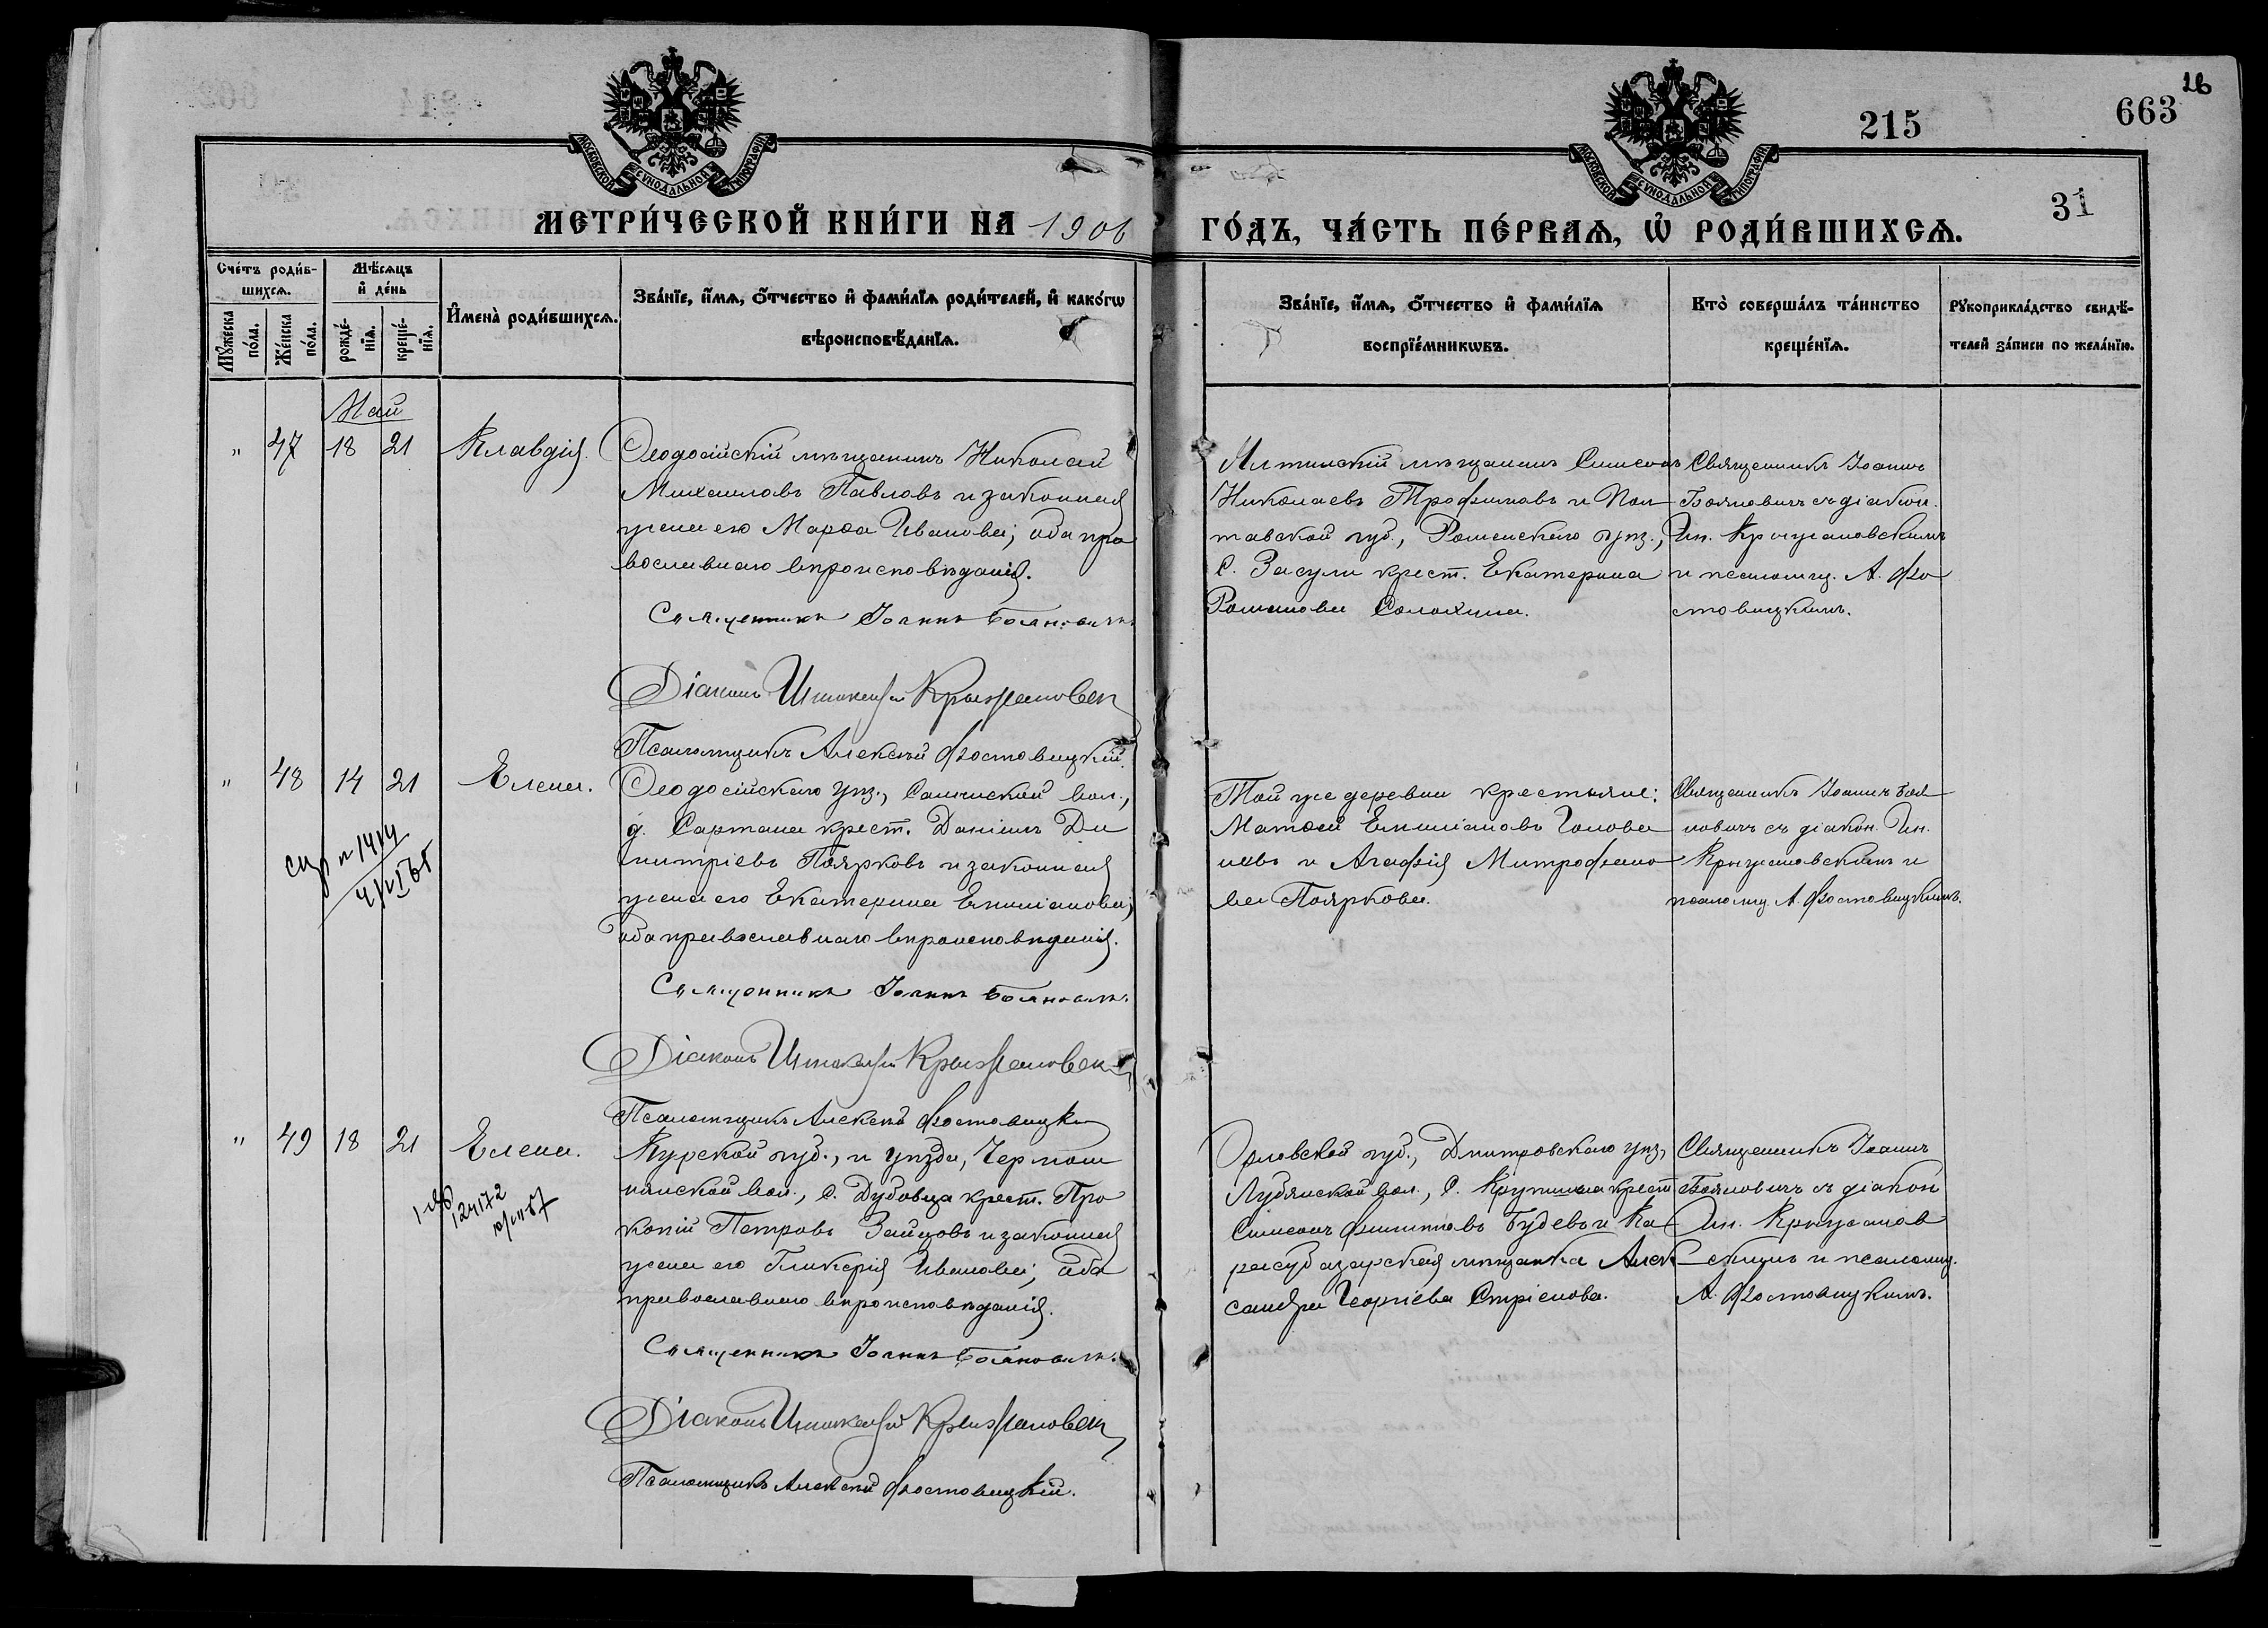 26
215
663
31
МОСКОВСКОЙ СѴНОДАЛЬНОЙ ТИПОГРАФІИ
МОСКОВСКОЙ СѴНОДАЛЬНОЙ ТИПОГРАФІИ
МЕТРИ́ЧЕСКОЙ КНИ́ГИ НА 1906
ГО́ДЪ, ЧА́СТЬ ПЕ́РВАѦ, Ѡ҆ РОДИ́ВШИХСѦ.
Сче́тъ роди́в-
шихсѧ.
Мѣ́сѧцъ
и҆ де́нь
Мꙋ́жеска по́ла.
Же́нска по́ла.
рожде́-нїѧ.
креще́-нїѧ.
И҆мена̀ роди́вшихсѧ.
Зва́нїе, и҆́мѧ, ѻ҆́тчество и҆ фами́лїѧ роди́телей, и҆ како́гѡ
вѣроисповѣ́данїѧ.
Зва́нїе, и҆́мѧ, ѻ҆́тчество и҆ фами́лїѧ
воспрїе́мникѡвъ.
Кто̀ соверша́лъ та́инство
креще́нїѧ.
Рꙋкоприкла́дство свидѣ́-
телей за́писи по жела́нїю.
Май
" 47 18 21 Клавдія.
Ѳеодосійскій мѣщанинъ Николай
Михаиловъ Павловъ и законная
жена его Марѳа Иванова; оба пра
вославнаго вѣроисповѣданія.
Священникъ Іоаннъ Бояновичъ
Діаконъ Иннокентій Крыжановск
Псаломщикъ Алексѣй Фростовицкій.
Ялтинскій мѣщанинъ Симеонъ
Николаевъ Трофимовъ и Пол
тавской губ., Роменскаго уѣз.,
с. Засули крест. Екатерина
Романова Солохина.
Священникъ Іоаннъ
Бояновичъ съ діакон.
Ин. Крыжановскимъ
и псаломщ. А. Фро
стовицкимъ.
" 48 14 21 Елена.
Ѳеодосійскаго уѣз., Салынской вол.,
д. Сартана крест. Даніилъ Ди
митріевъ Поярковъ и законная
жена его Екатерина Емиліанова;
оба православнаго вѣроисповѣданія.
Священникъ Іоаннъ Бояновичъ.
Діаконъ Иннокентій Крыжановск
Псаломщикъ Алексѣй Фростовицкі
Той же деревни крестьяне:
Матѳей Емиліановъ Голова
невъ и Агафія Митрофано
ва Пояркова.
Священникъ Іоаннъ Боя
новичъ съ діакон. Ин.
Крыжановскимъ и
псаломщ А. Фростовицкимъ.
" 49 18 21 Елена.
12472
Курской губ., и уѣзда, Чермош
нянской вол., с. Дубовца крест. Про
копій Петровъ Зайцовъ и законная
жена его Гликерія Иванова; оба
православнаго вѣроисповѣданія.
Священникъ Іоаннъ Бояновичъ.
Діаконъ Иннокентій Крыжановск
Псаломщикъ Алексѣй Фростовицкій.
Орловской губ., Дмитровскаго уѣз,
Лубянской вол., с. Крупишина крест
Симеонъ Филипповъ Будевъ и Ка
расубазарская мѣщанка Алек
сандра Георгіева Стріенова.
Священникъ Іоаннъ
Бояновичъ съ діакон
Ин. Крыжанов
скимъ и псаломщ.
А. Фростовицкимъ.